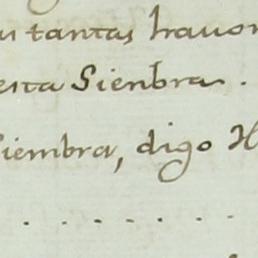 tantas
esta Sienbra.
Siembra, digo